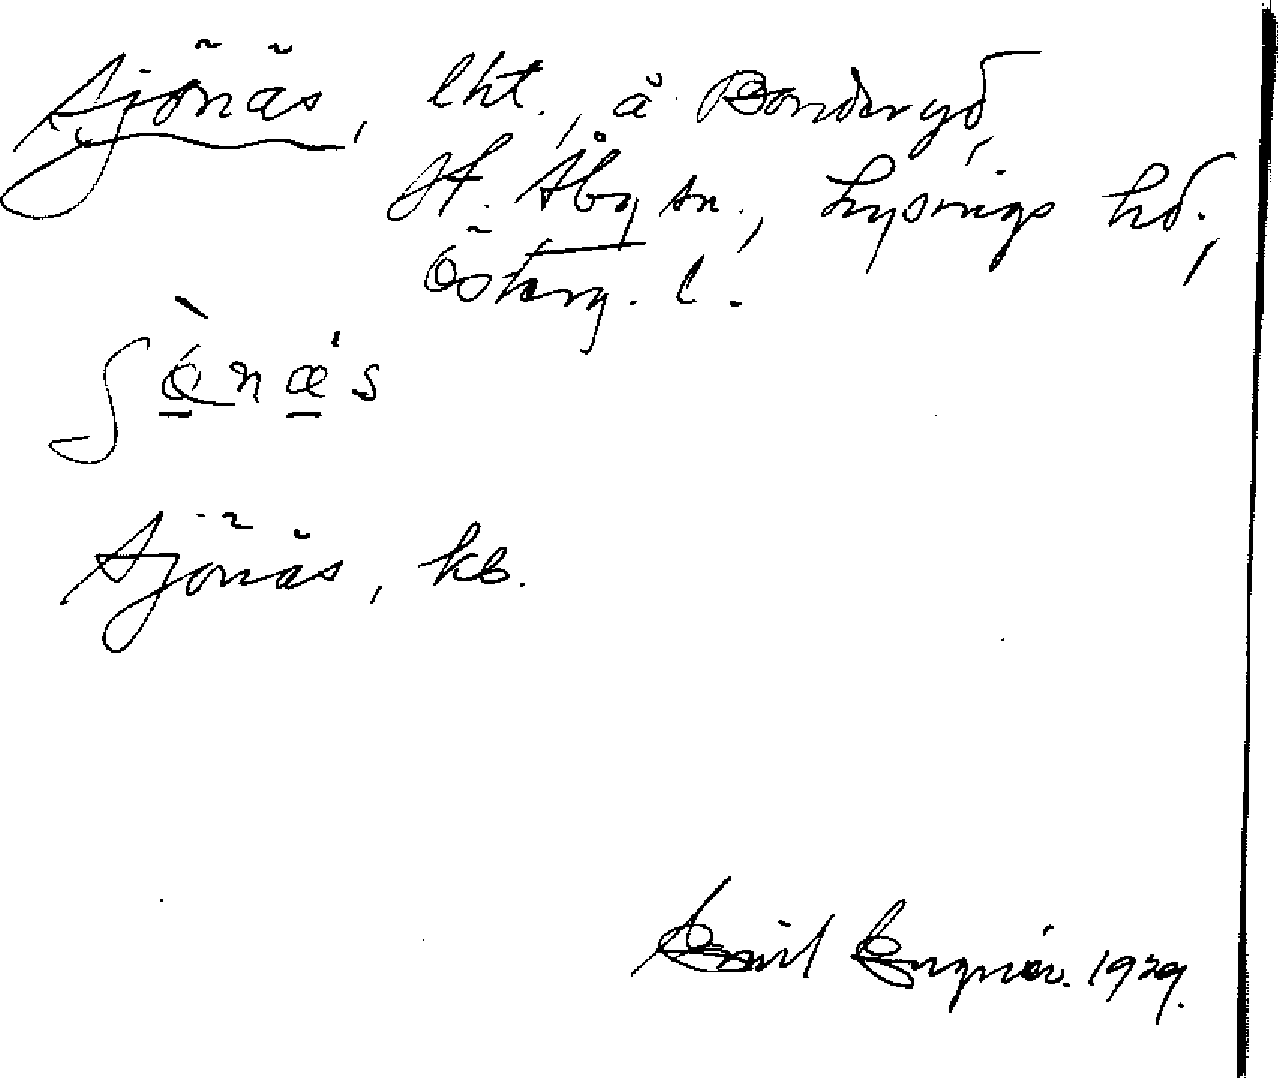 Sjönäs, lht., å Bonderyd,
St. Åby sn., Lysings hd.,
Österg. l.
Sjönäs, kb.
Emil 1929.